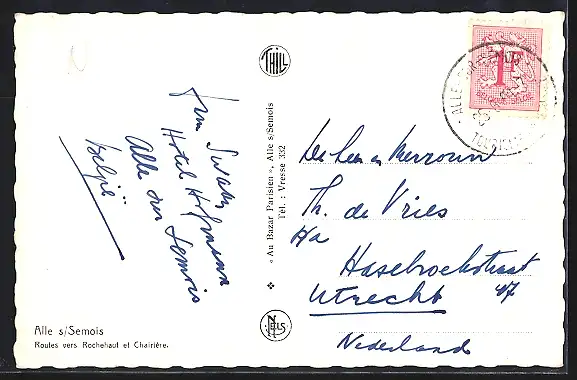 Hotel Hofmann
Alle sur Semois
België
THILL
« Au Bazar Parisien », Alle s/Semois
Tél. : Vresse 332
NELS
Alle s/Semois
Routes vers Rochehaut et Chairière.
1F
BELGIE-BELGIQUE
ALLE-SUR-SEMOIS
De Heer en Mevrouw
Th. de Vries
Haselbroekstraat
Utrecht 47
Nederland